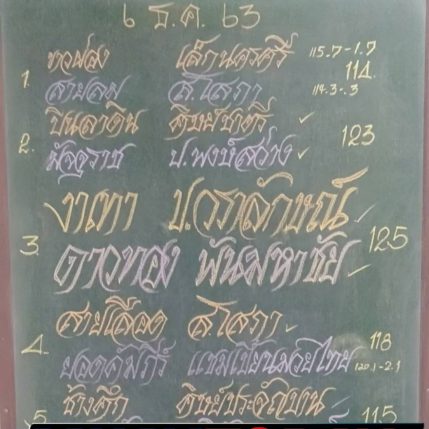 ๖ ธ.ค. ๖3
1. ทอฝอง เล็กนครศรี 115.7-1.7
สายลม ส.โสภา 114.-3-.3 114
2. บินลาดิน ศิษย์ชาตรี ✓
มัจุราช ป.พงษ์สว่าง ✓ 123
3. งาเทา ป.วราลักษณ์ ✓
ดาวทอง พันมหาชัย ✓ 125
4. สายเลือด ส.โสภา ✓ 118
ยอดคัมภีร์ แชมเปี้ยนมวยไทย 120.1-2.1
5. ช้างศึก ศิษย์ประจักษาน ✓ 115